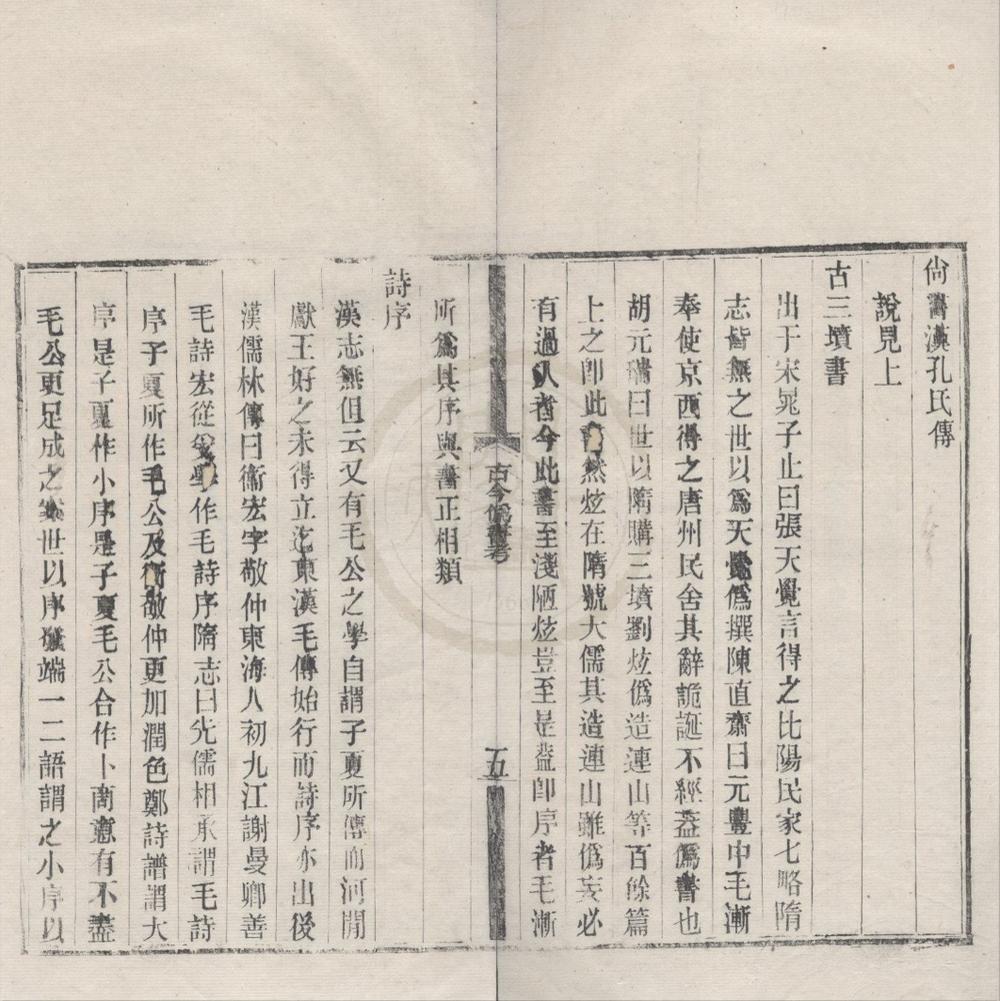 尙書漢孔氏傳
說見上
古三墳書
出于宋晁子止曰張天覺言得之比陽民家七略隋
志皆無之世以爲天覺僞撰陳直齋曰元豐中毛漸
奉使京西得之唐州民舍其辭詭誕不經蓋僞書也
胡元瑞曰世以隋購三墳劉炫僞造連山等百餘篇
上之卽此書然炫在隋號大儒其造連山雖僞妄必
有過人者今此書至淺陋炫豈至是蓋卽序者毛漸
古今僞書考
五
所爲其序與書正相類
詩序
漢志無但云又有毛公之學自謂子夏所傳而河閒
獻王好之未得立迄東漢毛傳始行而詩序亦出後
漢儒林傳曰衞宏字敬仲東海人初九江謝曼卿善
毛詩宏從受學作毛詩序隋志曰先儒相承謂毛詩
序子夏所作毛公及衞敬仲更加潤色鄭詩譜謂大
序是子夏作小序是子夏毛公合作卜商意有不盡
毛公更足成之世以序發端一二語謂之小序以